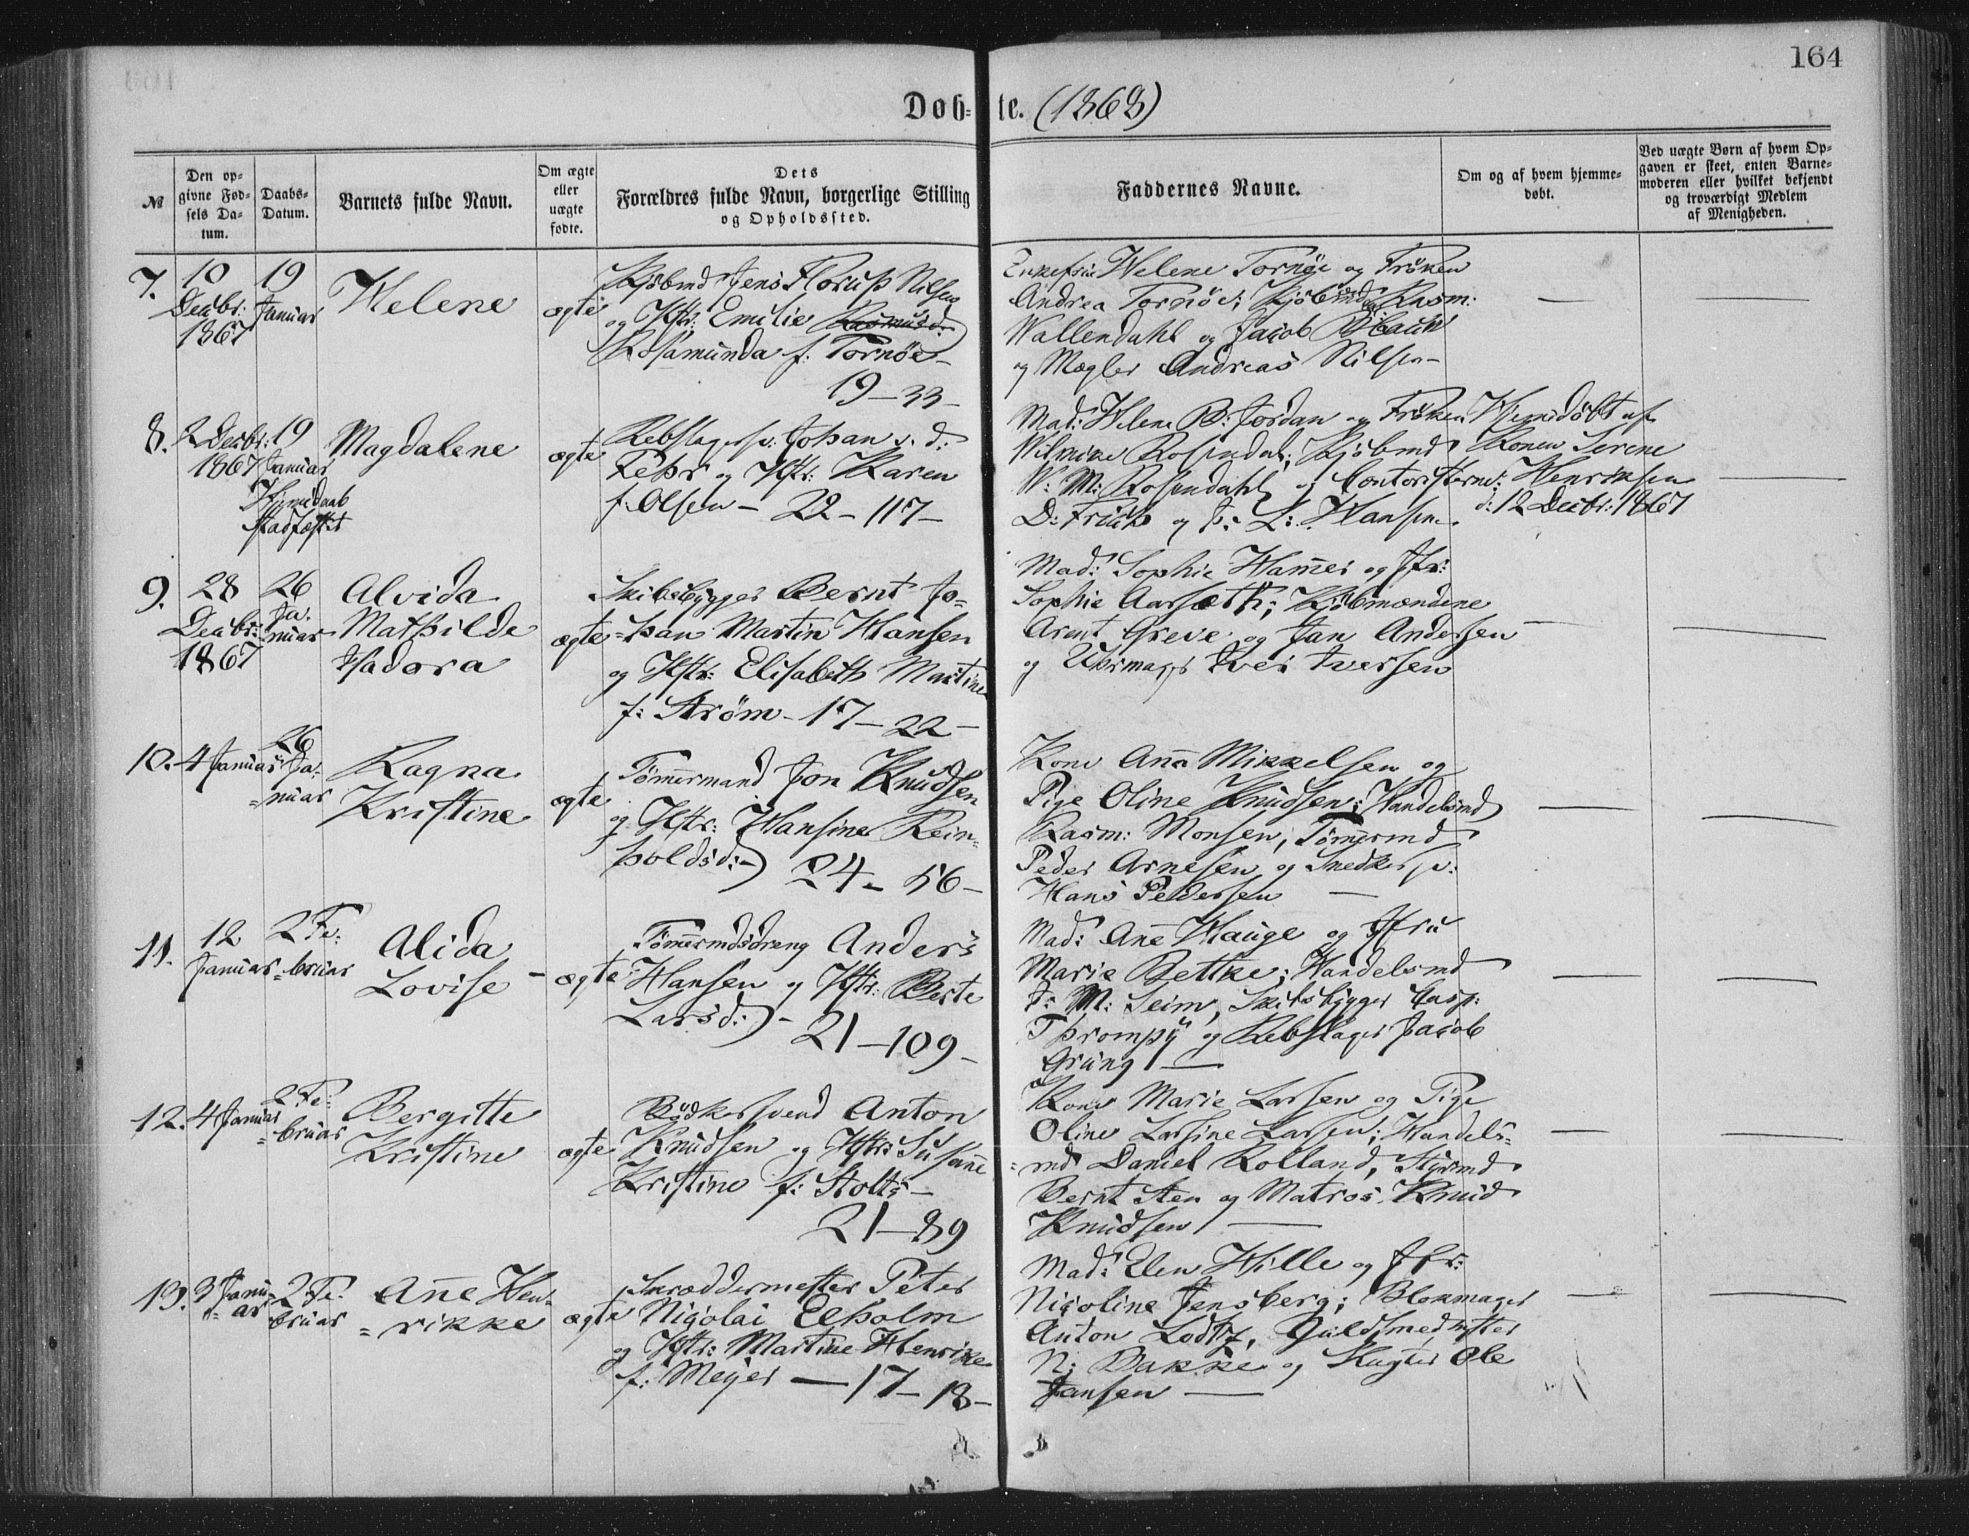 164
Døb- te. (1868)
№
Den opgivne Fødsels Datum.
Daabs-Datum.
Barnets fulde Navn.
Om ægte eller uægte fødte.
Dets
Forældres fulde Navn, borgerlige Stilling
og Opholdssted.
Faddernes Navne.
Om og af hvem hjemmedøbt.
Ved uægte Børn af hvem Op-
gaven er skeet, enten Barne-
moderen eller hvilket bekjendt
og troværdigt Medlem
af Menigheden.
7. 10 Decbr: 1867
19 Januar
Helene
ægte
Kjøbmd Jens Florus Nilsen
og Hstr: Emilie
Rosamunda f: Tornøe
19 – 33 –
Enkefru Helene Tornøe og Frøken
Andrea Tornøe; Kjøbmd Rasm:
Wallendahl og Jacob
og Mægler Andreas Nilsen –
8. 2 Decbr: 1867
19 Januar
Hjemdaab
stadfæstet
Magdalene
ægte
Rebslagersv. Johan v. d:
Fehr og Hstr: Karen
f: Olsen – 22 – 117 –
Mad: Helene B: Jordan og Frøken
Wilmine Rosendal; Kjøbmd
W: M: Rosendahl og Contoristerne
D: Friis og J: L: Hansen.
Hjemdøbt af
Konen Serene
Henriksen
d: 12 Decbr: 1867
9. 28 Decbr: 1867
26 Januar
Alvida
Mathilde
Isadora
ægte
Skibsbygger Bernt Jo-
han Martin Hansen
og Hstr: Elisabeth Martine
f: Strøm – 17 – 22 –
Mad: Sophie Hamer og Jfr:
Sophie Aarsæth; Kjøbmændene
Arent Greve og Jan Andersen
og Uhrmager Iver Iversen
10. 4 Januar
26 Januar
Ragna
Kristine
ægte
Tømermand Jon Knudsen
og Hstr: Hansine Rein-
holdsd: 24 – 56 –
Kone Ana Mikkelsen og
Pige Oline Knudsen; Handelsmd
Rasm: Monsen, Tømermd
Peder Arnesen og Snedkersv:
Hans Pedersen
11. 12 Januar
2 Februar
Alida
Lovise
ægte
Tømermdsdreng Anders
Hansen og Hstr: Berte
Larsd: –
21 – 109 –
Mad: Ane Hauge og Jfru
Marie Bettke; Handelsmd
J: M: Seim, Skibsbygger Casp:
Thrompy og Rebslager Jacob
Grung
12. 4 Januar
2 Februar
Bergitte
Kristine
ægte
Bødkersvend Anton
Knudsen og Hstr: Susane
Kristine f: Stoltz –
21 – 89
Kone Marie Larsen og Pige
Oline Larsine Larsen; Handels-
md Daniel Rolland, Styrmd
Bernt Sten og Matros Knud
Knudsen
13. 3 Januar
2 Februar
Ane Hen-
rikke
ægte
Skræddermester Peter
Nicolai Elholm
og Hstr: Martine Henrikke
f: Meyer – 17 – 18 –
Mad: Elen Hille og Jfr:
Nicoline Jensberg; Blokmager
Anton Lodtz, Guldsmedmester
N: Bakke og Ole
Jansen